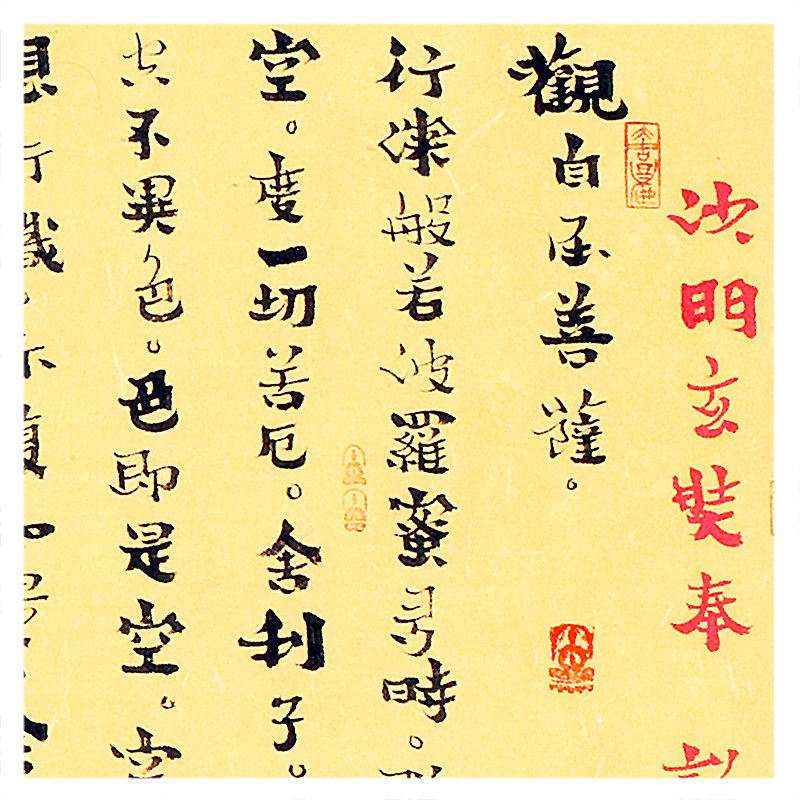 沙門玄奘奉
觀自在菩薩。
行深般若波羅蜜多時。
空。度一切苦厄。舍利子。
空不異色。色即是空。空
想行識。亦復如是。舍